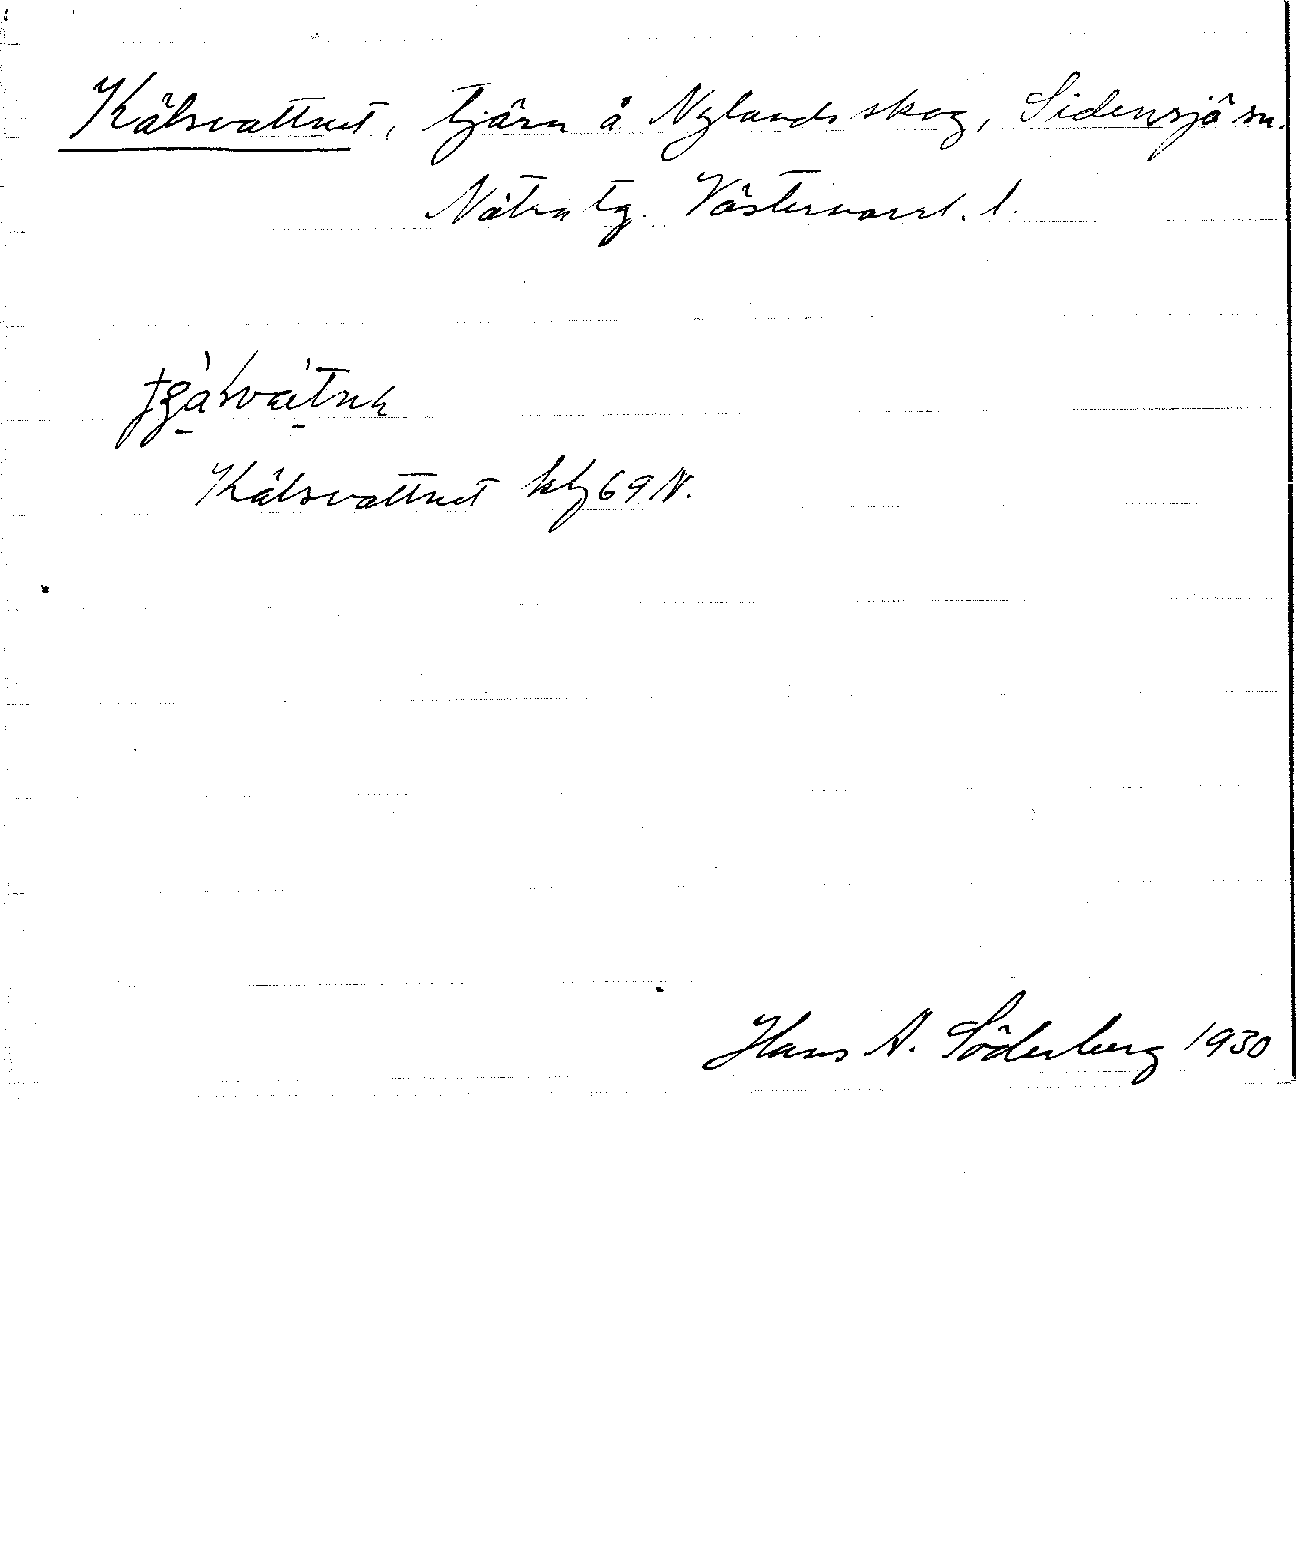 Kälsvattnet, tjärn å Nylands skog, Sidensjö sn.
Nätra tg. Västernorrl. l.
Kälsvattnet kbl 69 N.
Hans A. Söderberg 1930